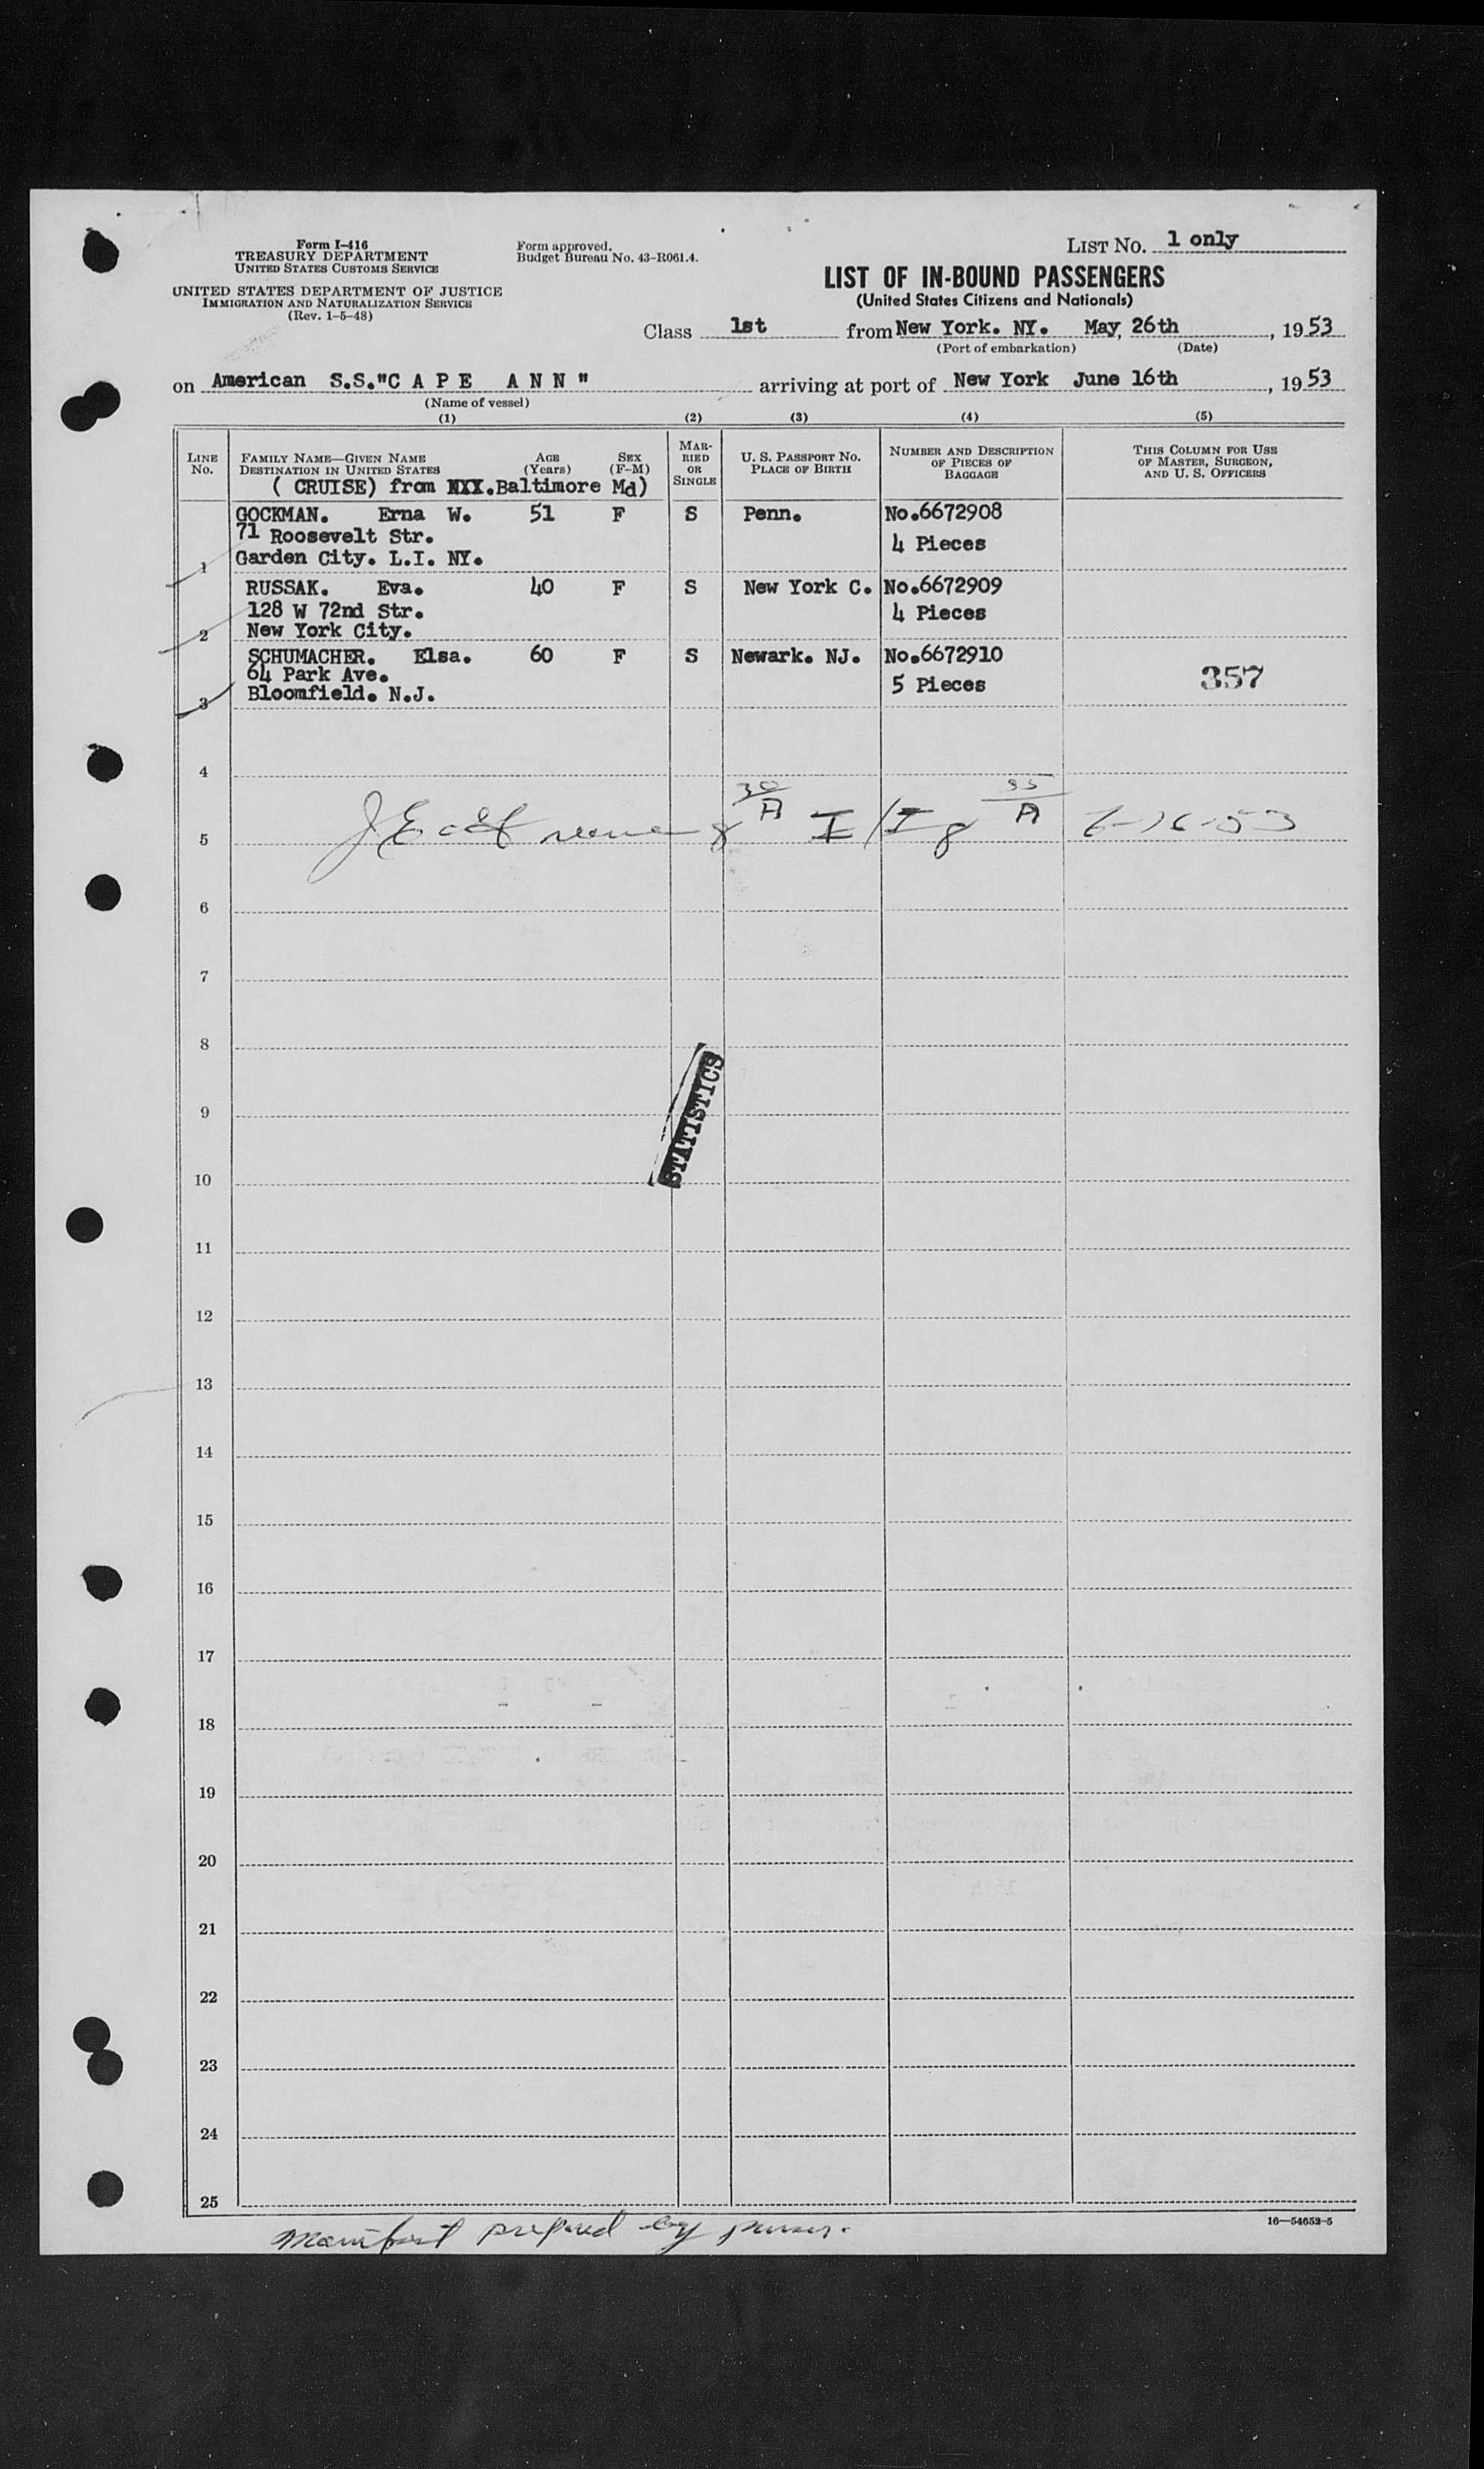 Form I-416
TREASURY DEPARTMENT
UNITED STATES CUSTOMS SERVICE
UNITED STATES DEPARTMENT OF JUSTICE
IMMIGRATION AND NATURALIZATION SERVICE
(Rev. 1-5-48)
Form approved.
Budget Bureau No. 43-R061.4.
LIST NO. 1 only
LIST OF IN-BOUND PASSENGERS
(United States Citizens and Nationals)
Class 1st from New York. NY. May, 26th, 1953
(Port of embarkation) (Date)
on American S.S."C A P E A N N" arriving at port of New York June 16th, 1953
(Name of vessel)
(1) (2) (3) (4) (5)
LINE No.
FAMILY NAME—GIVEN NAME
DESTINATION IN UNITED STATES
AGE (Years)
SEX (F-M)
MARRIED OR SINGLE
U. S. PASSPORT NO.
PLACE OF BIRTH
NUMBER AND DESCRIPTION OF PIECES OF BAGGAGE
THIS COLUMN FOR USE OF MASTER, SURGEON, AND U. S. OFFICERS
( CRUISE) from Baltimore Md)
GOCKMAN. Erna W. 51 F S Penn. No.6672908
71 Roosevelt Str. 4 Pieces
1 Garden City. L.I. NY.
RUSSAK. Eva. 40 F S New York C. No.6672909
128 W 72nd Str. 4 Pieces
2 New York City.
SCHUMACHER. Elsa. 60 F S Newark. NJ. No.6672910
64 Park Ave.
3 Bloomfield. N.J. 5 Pieces 357
4
5 6-16-53
6
7
8
STATISTICS
9
10
11
12
13
14
15
16
17
18
19
20
21
22
23
24
25
Manifest prepared by purser.
16—54652-5